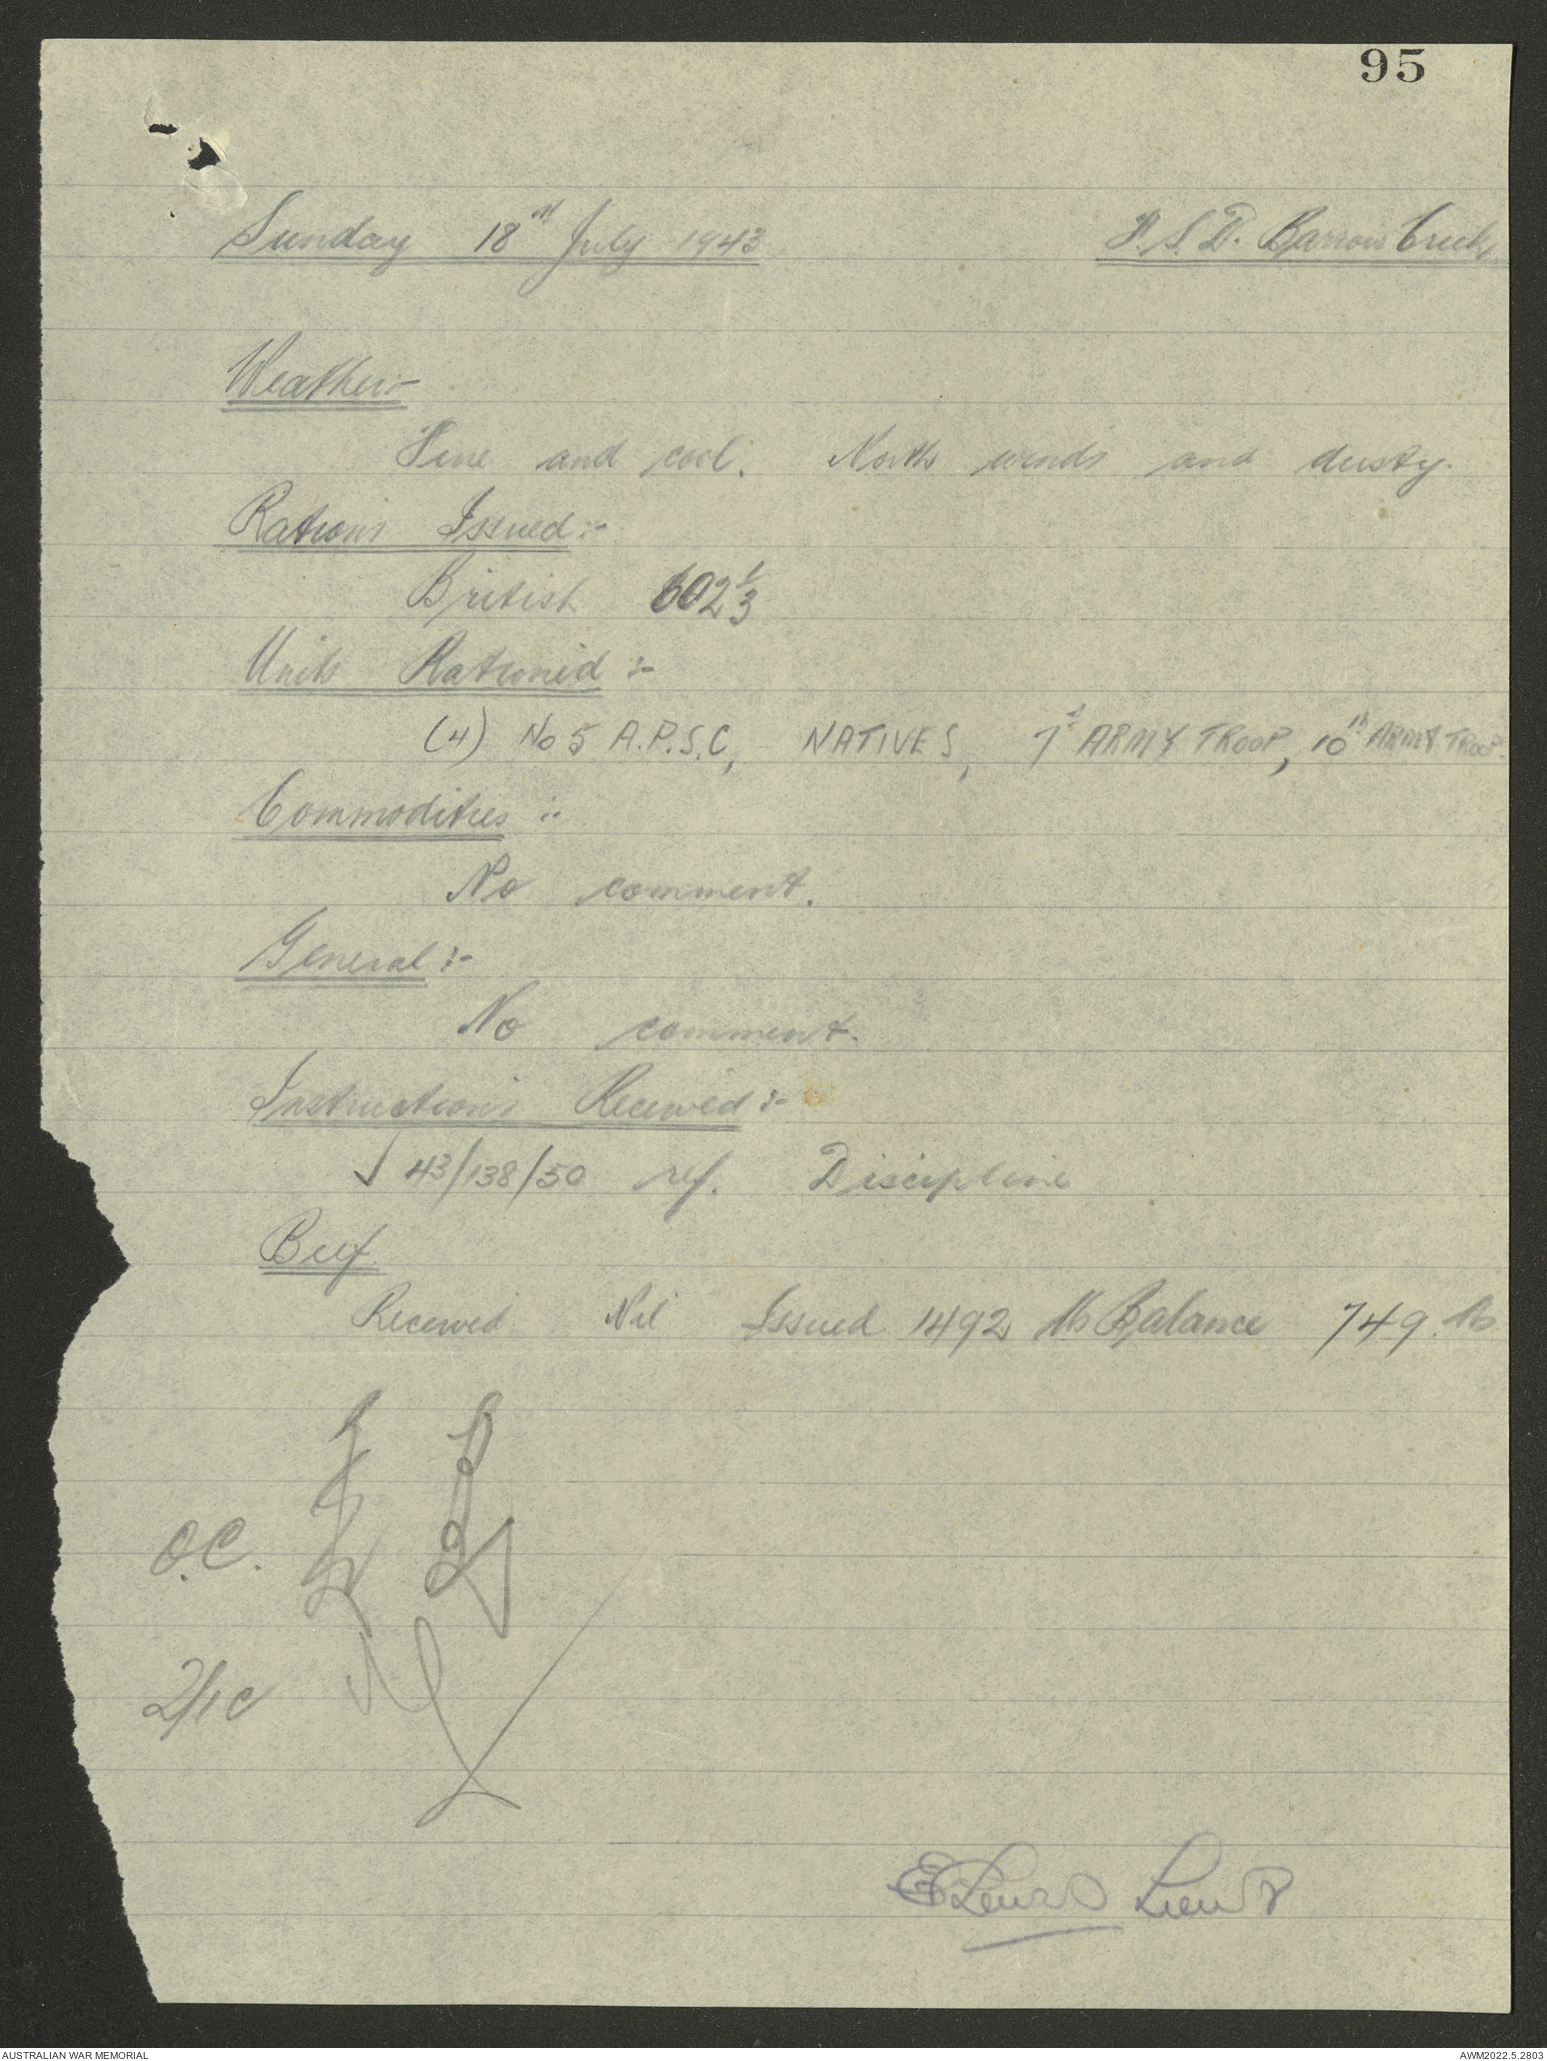 95
Sunday 18th July 1943 F.S.D. Barrow Creek
Weather:-
Fine and cool. North winds and dusty.
Rations Issued:-
British 602 1/3
Units Rationed :-
(4) No 5 A.P.S.C, NATIVES, 7th ARMY TROOP, 10th ARMY TROOP.
Commodities :-
No comment.
General :-
No comment.
Instructions Received :-
✓ 43/138/50 ref. Discipline
Beef
Received Nil Issued 1492 lb Balance 749 lb
O.C.
2/ic
Lieut
AUSTRALIAN WAR MEMORIAL AWM2022.5.2803